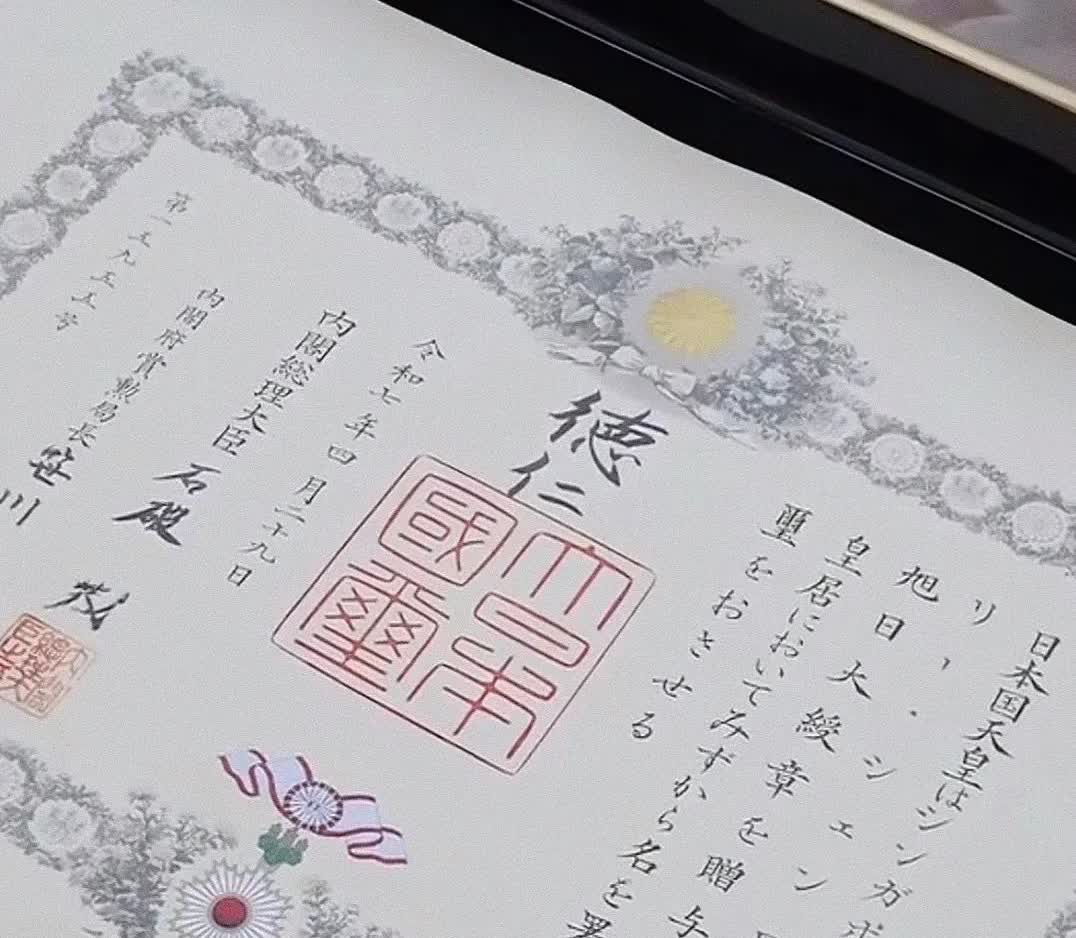 日本国天皇はシンガポ
リー・シェン
旭日大綬章を贈与
皇居においてみずから名を署
璽をおさせる
徳仁
大日本國璽
令和七年四月二十九日
内閣総理大臣 石破 茂
内閣府賞勲局長 笹川
第一五九五五号